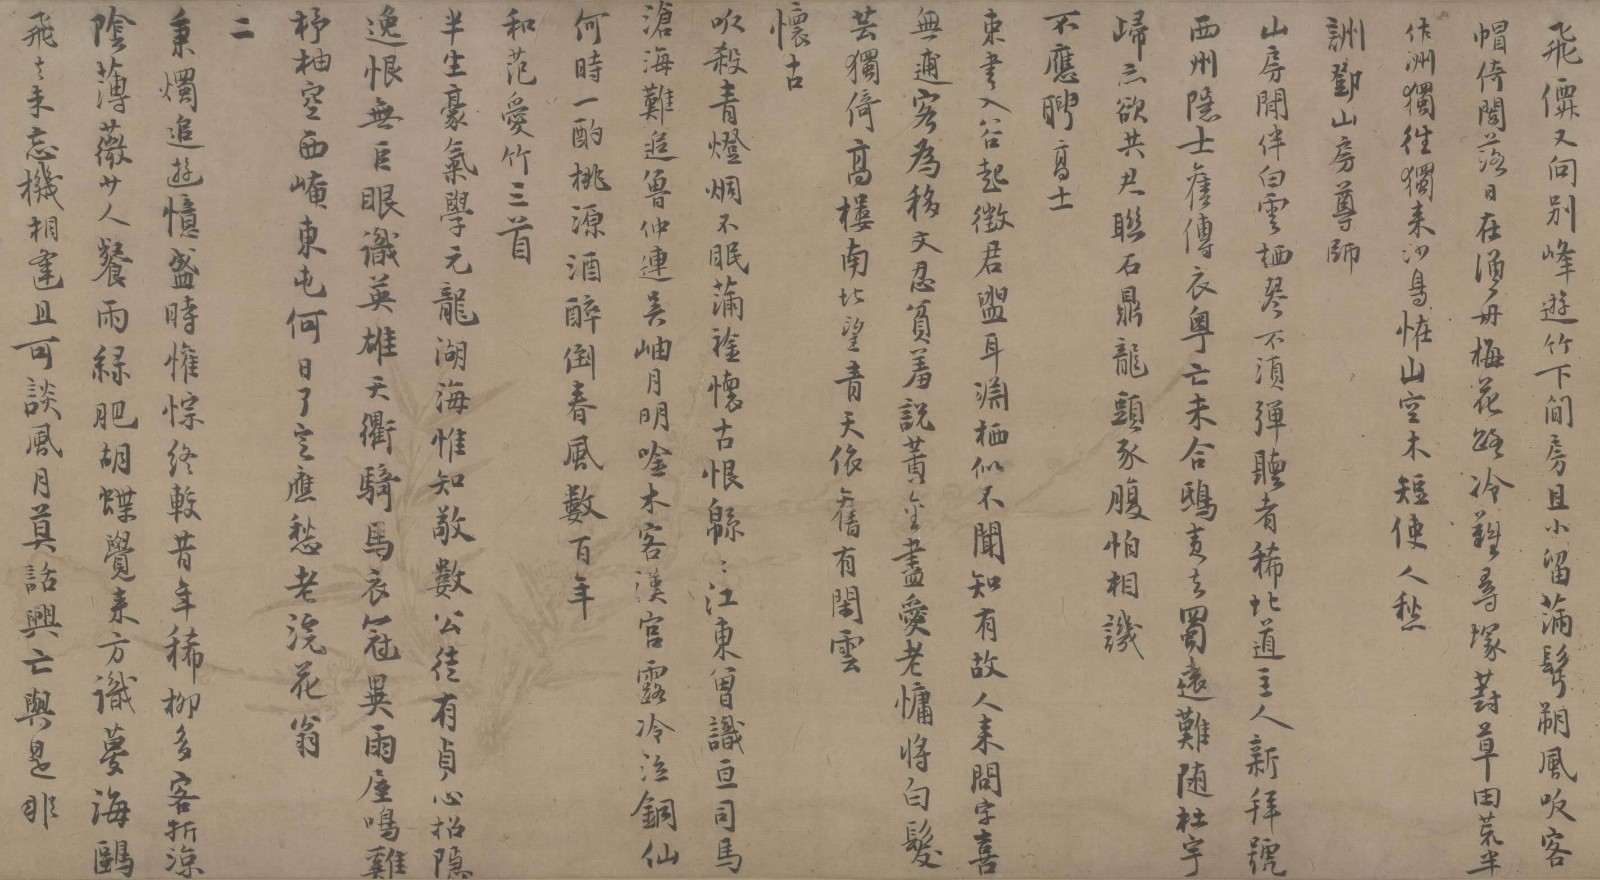 飛儛又向别峰遊竹下间房且小留蒲鬂朔風吹客
帽倚闌落日在漁舟梅花路冷難尋塚葑草田荒半
作洲獨往獨来沙鳥恠山空木短使人愁
訓鄧山房尊師
山房閒伴白雲栖琴不湏彈聽者稀北道主人新拜號
西州隱士舊傳衣粤亡未合鴟夷去蜀遠難随杜宇
歸亦欲共君聯石鼎龍頭豕腹怕相譏
不應聘高士
束書入谷起徵君盥耳淵栖似不聞知有故人来問字喜
無逋客為移文忍貧羞説黄金盡愛老慵将白髮
芸獨倚髙樓南北望青天依舊有閑雲
懷古
吹殺青燈炯不眠蒲襟懷古恨緜〻江東曾識亘司馬
滄海難追魯仲連吴岫月明唫木客漢宫露冷泣銅仙
何時一酌桃源酒醉倒春風數百年
和范愛竹三首
半生豪氣學元龍湖海惟知敬數公徒有貞心招隱
逸恨無巨眼識英雄天衢騎馬衣冠異雨屋鳴雞
杼柚空西崦東屯何日了定應愁老浣花翁
二
秉燭追遊憶盛時懽悰終較昔年稀柳多客折涼
陰薄薇少人餐雨緑肥胡蝶覺来方識夢海鷗
飛去未忘機相逢且可談風月莫話興亡與是非